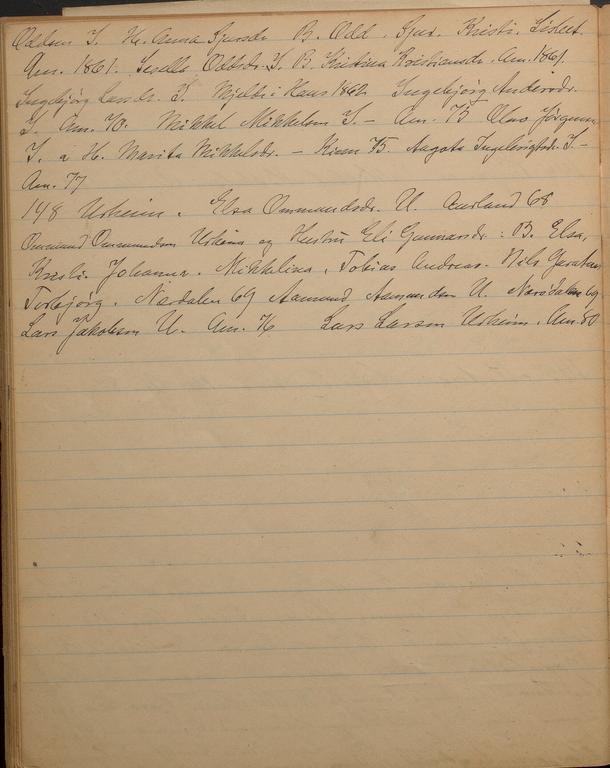 Oddsen S. H. Anna Sjursdr. B. Odd. Sjur. Kristi. Lisbet.
Am. 1861. Oddsdr. S. B. Kristina Kristiansdr. Am. 1861.
Ingebjörg Larsdr. S. Mjelde i Haus 1862. Ingebjörg Andersdr.
S. Am. 70. Mikkel Mikkelsen S. - Am. 73 Olav Jörgensen
S. a H. Marita Mikkelsdr. - Kinn 75. Aagota Ingebrigtsdr. S. -
Am. 77
148 Usheim. Elsa Ommundsdr. U. Aurland 68
Ommund Ommundsen Usheim og Hustru Eli Gunnarsdr: B. Elsa,
Kristi. Johanna. Mikkelina, Tobias Andreas. Nils
Torbjörg. Nærdalen 69 Aamund Aamundsen U. 69
Lars Jakobsen U. Am. 76 Lars Larsen Usheim, Am. 80